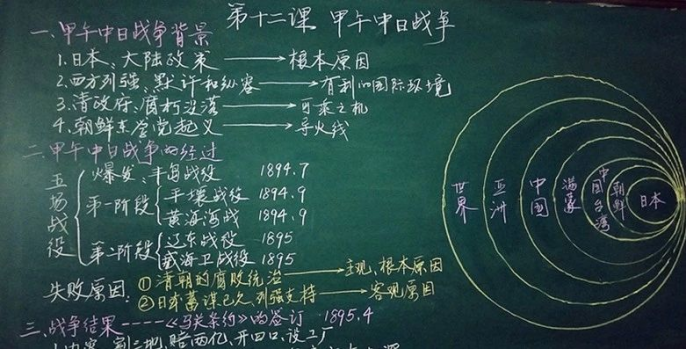 第十二课 甲午中日战争
一、甲午中日战争背景
1.日本、大陆政策 → 根本原因
2.西方列强、默许和纵容 → 有利的国际环境
3.清政府、腐朽没落 → 可乘之机
4.朝鲜东学党起义 → 导火线
二、甲午中日战争的经过
五场战役
爆发: 丰岛战役 1894.7
第一阶段 平壤战役 1894.9
黄海海战 1894.9
第二阶段 辽东战役 1895
威海卫战役 1895
失败原因:
①清朝的腐败统治 → 主观、根本原因
②日本蓄谋已久,列强支持 → 客观原因
三、战争结果----《马关条约》的签订 1895.4
割三地,赔两亿、开四口,设工厂
世界
亚洲
中国
满蒙
中国台湾
朝鲜
日本